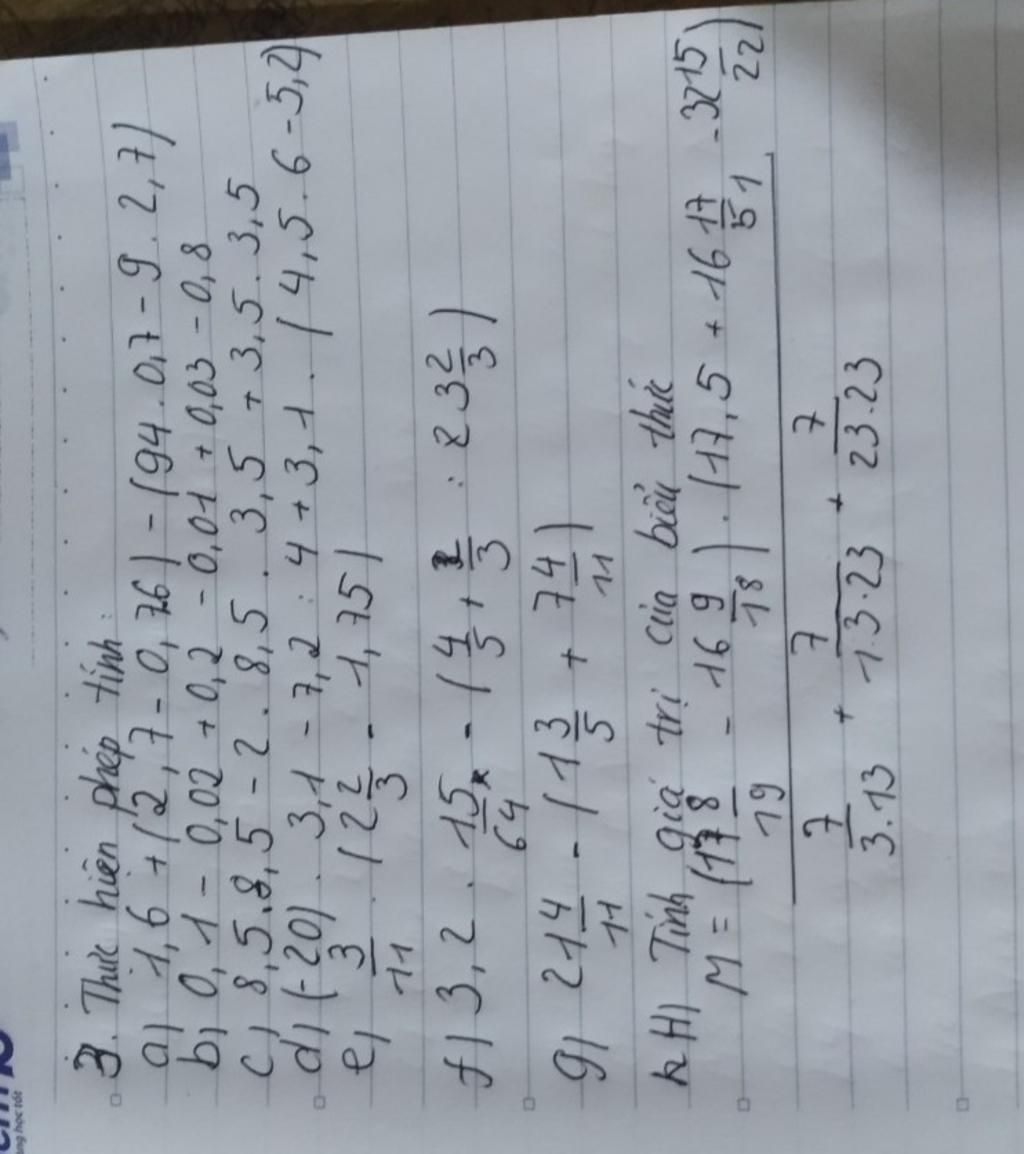 3. Thức hiện phép tính:
a) 1,6 + (2,7 - 0,76) - (94 . 0,7 - 9 . 2,7)
b) 0,1 - 0,02 + 0,2 - 0,01 + 0,03 - 0,8
c) 8,5.8,5 - 2 . 8,5 . 3,5 + 3,5 . 3,5
d) (-20) . 3,1 - 7,2 : 4 + 3,1 . (4,5 . 6 - 5,2)
e) 3/11 . (2 2/3 - 1,75)
f) 3,2 . 15/64 - (4/5 + 2/3 : 2 3 2/3)
g) 21 4/11 - (1 3/5 + 7 4/11)
H) Tính giá trị của biểu thức
M = (17 8/19 - 16 9/18) . (17,5 + 16 17/51 - 32 15/22)
7/3.13 + 7/13.23 + 7/23.23
ng học tốt